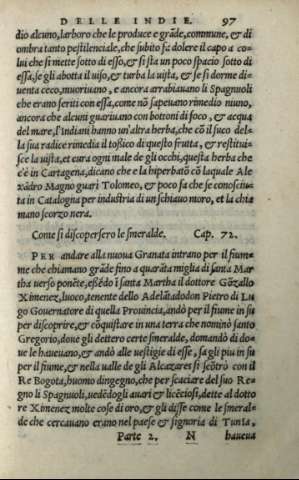 DELLE INDIE. 97
dio alcuno, larboro che le produce e grãde, commune, & di
ombra tanto pestilentiale, che subito fa dolere il capo a co-
lui che si mette sotto di esso, & si sta un poco spacio sotto di
essa, se gli abotta il uiso, & turba la uista, & se si dorme di-
uenta ceco, muoriuano, e ancora arrabiauano li Spagnuoli
che erano feriti con essa, come nõ sapeuano rimedio niuno,
ancora che alcuni guariuano con bottoni di foco, & acqua
del mare, l'indiani hanno un'altra herba, che cõ il suco del-
la sua radice rimedia il tossico di questo frutta, & restitui-
sce la uista, et cura ogni male de gli occhi, questa herba che
c'è in Cartagena, dicano che e la hiperbatõ cõ laquale Ale
xãdro Magno guari Tolomeo, & poco fa che se conosciu-
ta in Catalogna per industria di un schiauo moro, et la chia
mano scorzo nera.
Come si discopersero le smeralde. Cap. 72.
PER andare alla nuoua Granata intrano per il fiume
me che chiamano grãde fino a quarãta miglia di santa Mar
tha uerso ponẽte, essẽdo ĩ santa Martha il dottore Gõzallo
Ximenez, luoco, tenente dello Adelãtadon Pietro di Lu
go Gouernatore di quella Prouincia, andò per il fiume in su
per discoprire, & cõquistare in una terra che nominò santo
Gregorio, doue gli dettero certe smeralde, domandò di do-
ue le haueuano, & andò alle uestigie di esse, sa gli piu in su
per il fiume, & nella ualle de gli Alcazares si scõtrò con il
Re Bogota, huomo dingegno, che per scaciare del suo Re-
gno li Spagnuoli, uedẽdogli auari & licẽciosi, dette al dotto
re Ximenez molte cose di oro, & gli disse come le smeral-
de che cercauano erano nel paese & signoria di Tunta,
Parte 2. N haueua